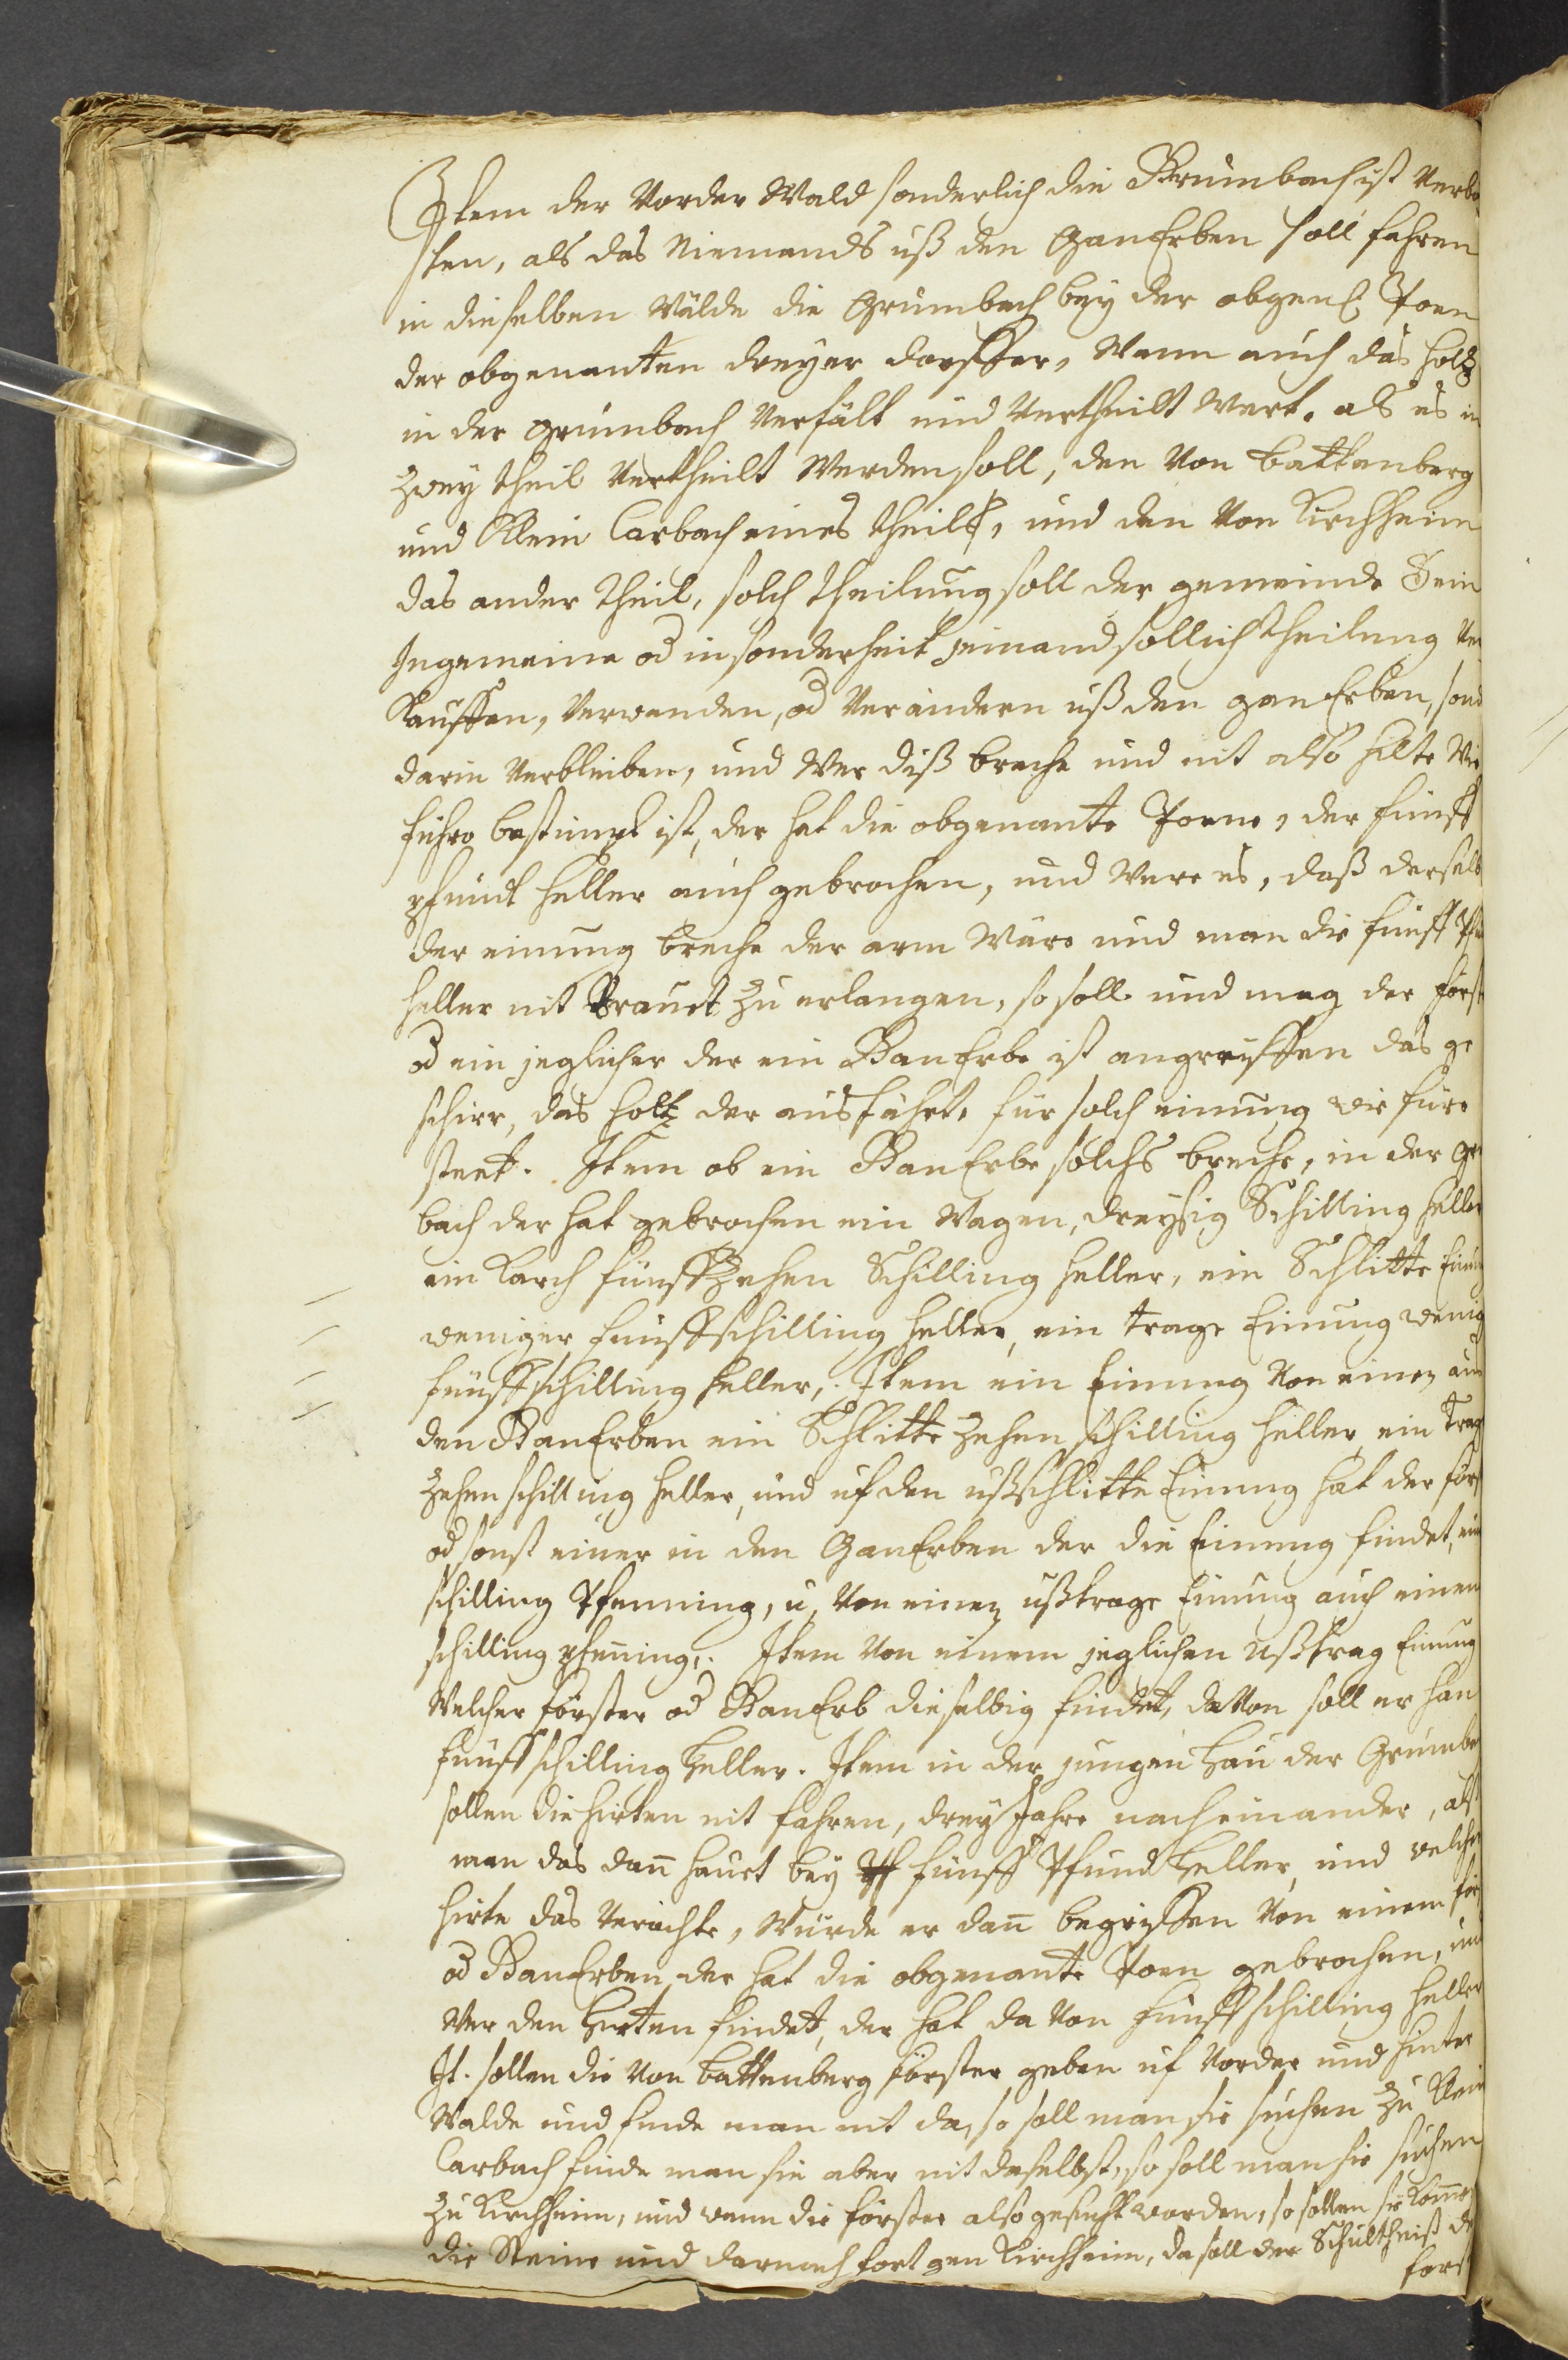 Item der Vorder Wald sonderlich die Grumbach ist verbo
ten, als das Niemands uß den GanErben soll fahren
in dieselben Wälde die Grumbach bey der obgen. Poen
der obgenanten dreyer dorffer, Wann auch das holtz
in der grumbach verfält und vertheilt Wert. als es in
zwey theil vertheilt Werden soll, den Von Battenberg
und Klein Carbach eines theils, und den Von Kirchheim
das ander theil, solch theilung soll der gemeinde sein
Ingemeine od insonderheit jemand sollich theilung ver
Kauffen, verwenden, od verändern uß den ganErben, sond
darin verbleiben, und Wer diß breche und nit also hilte Wie
fuhro bestimpt ist, der hat die obgenante Poene, der fünff
pfundt heller auch gebrochen, und Were es, daß derselb
der einung breche der arm Wäre und man die fünff Pfu
heller nit Traut zu erlangen, so soll und mag der först
od ein jeglicher der ein GanErbe ist angreiffen das ge
schirr, das holtz der ausführt, für solch einung die fürs
steet. Item ob ein GanErbe solchs breche, in der gr
bach der hat gebrochen ein Wagen, dreysig Schilling heller
ein Karch fünffzehen Schilling heller, ein Schlitte Einun
weniger fünffschilling heller, ein trage Einung wenig
fünffschilling heller,. Item ein Einung Von einem au
den GanErben ein Schlitte zehen schilling heller, ein Trag
zehen schilling heller, und uf den ußschlitte Einung hat der förs
od sonst einer in den GanErben der die Einung findet, ein
schilling Pfenning, u. Von einem ußtrage Einung auch einen
schilling pfenning,. Item Von einem jeglichen Ußtrag Einung
Welcher förster od GanErb dieselbig findet, davon soll er han
fünff schilling heller. Item in der jungen Hau der Grumba
sollen die hirten nit fahren, drey Jahre nacheinander, als
man das dann haüet bey fünff Pfund heller, und welcher
hirte das verachte, Würde er dann begriffen Von einem för
od GanErben der hat die obgenante Poen gebrochen, und
Wer den Hirten findet, der hat da Von fünff schilling heller
It. sollen die Von Battenberg förster geben uf Vorder und hinter
Walde und finde man nit da, so soll man sie suchen zu Klein
Carbach finde man sie aber nit daselbst, so soll man sie suchen
zu Kirchheim, und wenn die förster also gesucht worden, so sollen sie komme
die Steine und darnach fort gen Kirchheim, da soll der Schultheiß de
förs